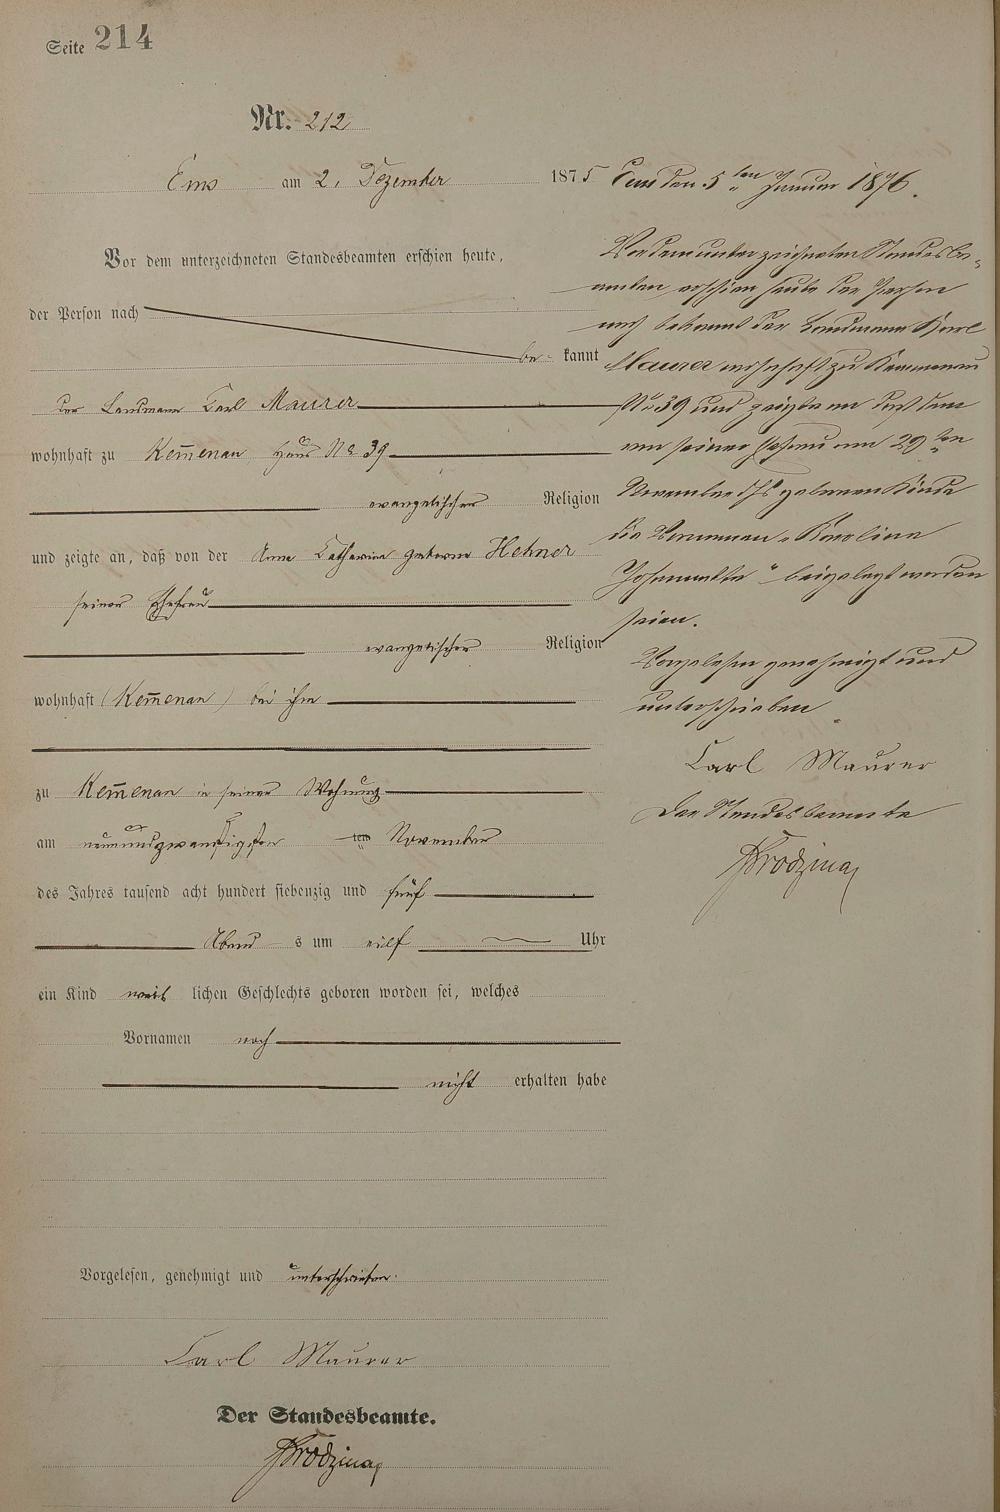 Seite 214
Nr. 212
Ems am 2. Dezember 1875
Vor dem unterzeichneten Standesbeamten erschien heute,
der Person nach
be- kannt
der Landmann Carl Maurer
wohnhaft zu Kem̅enau Haus No 39
evangelischer Religion
und zeigte an, daß von der Anna Catharina geborne Hehner
seiner Ehefrau
evangelischer Religion
wohnhaft (Kem̅enau) bei ihm
zu Kem̅enau in seiner Wohnung
am neunundzwanzigsten ten November
des Jahres tausend acht hundert siebenzig und fünf
Abend s um eilf Uhr
ein Kind weib lichen Geschlechts geboren worden sei, welches
Vornamen noch
nicht erhalten habe
Vorgelesen, genehmigt und unterschrieben.
Carl Maurer
Der Standesbeamte.
Ems den 5ten Januar 1876.
Vor dem unterzeichneten Standesbe-
amten, erschien heute der Person
nach bekannt der Landmann Karl
Maurer wohnhaft zu Kemmenau
No 39 und zeigte an daß dem
von seiner Ehefrau am 29ten
November geborenen Kinde
die Vornamen „Karoline
Johannette" beigelegt worden
seien.
Vorgelesen genehmigt und
unterschrieben
Carl Maurer
Der Standesbeamte